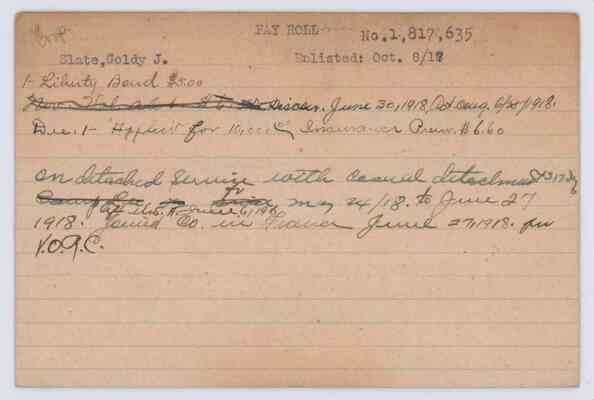 PAY ROLL
No.1,817,635
Slate,Goldy J.
Enlisted: Oct. 8/17
1- Liberty Bond $50.00
Discon. June 30, 1918, Act Aug. 6/25/1918.
Dec. 1- Applied for 10,000 Insurance Prem. $6.60
on detached service with casual detachment
May 24/18. to June 27
1918. Joined Co. in France June 27, 1918. per
V.O.R.C.